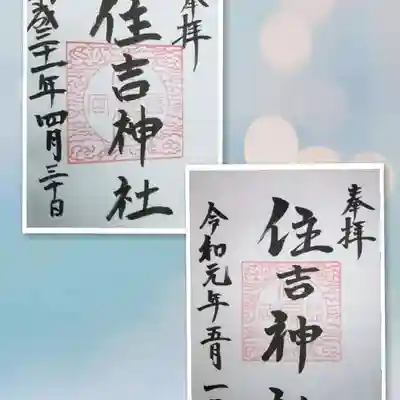 奉拝
住吉神社
成三十一年四月三十日
奉拝
住吉神社
令和元年五月一日